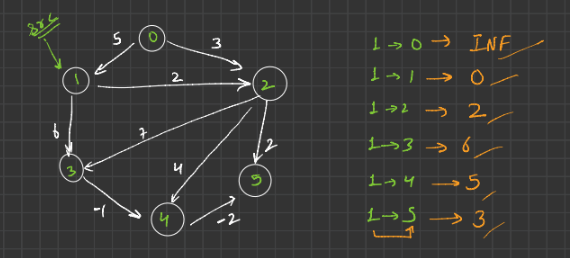 src
5
0
3
1
2
2
6
7
4
2
3
5
-1
4
-2
1 → 0 → INF
1 → 1 → 0
1 → 2 → 2
1 → 3 → 6
1 → 4 → 5
1 → 5 → 3